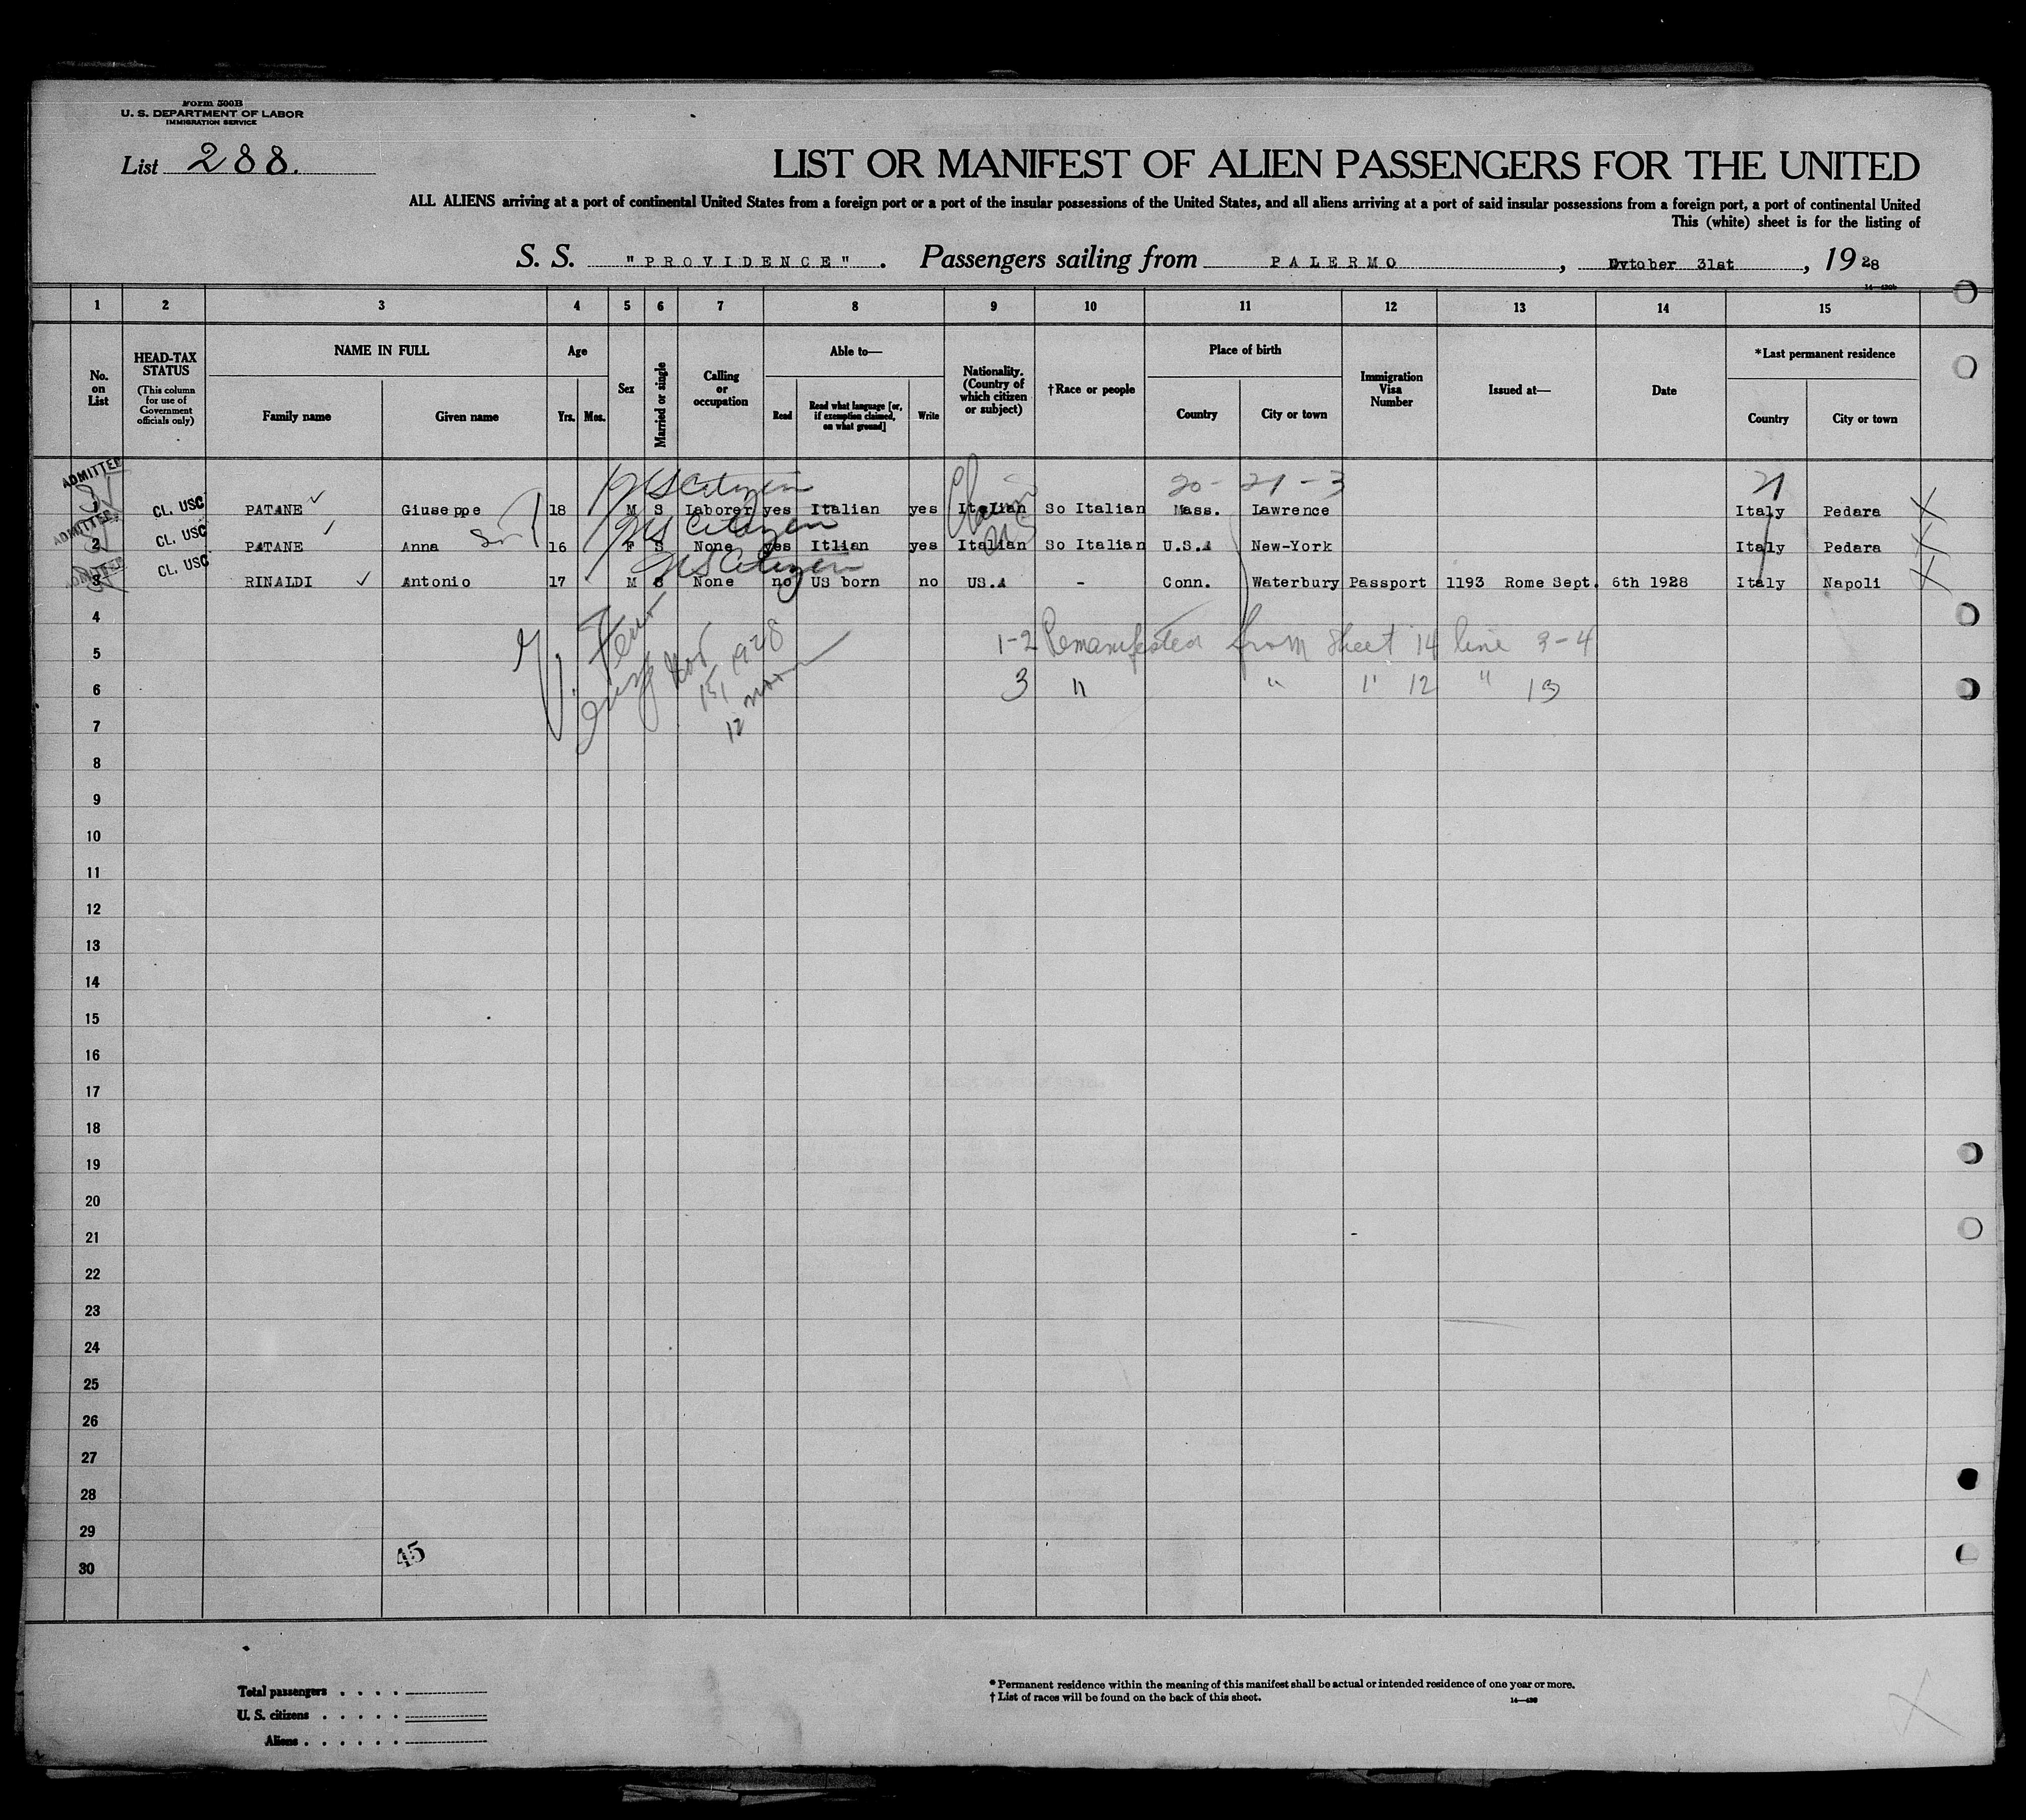 Form 500B
U. S. DEPARTMENT OF LABOR
IMMIGRATION SERVICE
List 288.
LIST OR MANIFEST OF ALIEN PASSENGERS FOR THE UNITED
ALL ALIENS arriving at a port of continental United States from a foreign port or a port of the insular possessions of the United States, and all aliens arriving at a port of said insular possessions from a foreign port, a port of continental United
This (white) sheet is for the listing of
S. S. "PROVIDENCE". Passengers sailing from PALERMO, Dvtober 31st, 1928
1 2 3 4 5 6 7 8 9 10 11 12 13 14 15
No. on List
HEAD-TAX STATUS
(This column for use of Government officials only)
NAME IN FULL
Family name Given name
Age
Yrs. Mos.
Sex
Married or single
Calling or occupation
Able to—
Read Read what language [or, if exemption claimed, on what ground] Write
Nationality. (Country of which citizen or subject)
†Race or people
Place of birth
Country City or town
Immigration Visa Number
Issued at—
Date
*Last permanent residence
Country City or town
ADMITTED
US Citizen 20- 21-3 21
CL. USC PATANE Giuseppe 18 M S Laborer yes Italian yes Italian So Italian Mass. Lawrence Italy Pedara X
ADMITTED
US Citizen
2 CL. USC PATANE Anna 16 F S None yes Itlian yes Italian So Italian U.S.A New-York Italy Pedara X
ADMITTED
US Citizen
3 CL. USC RINALDI Antonio 17 M S None no US born no US.A - Conn. Waterbury Passport 1193 Rome Sept. 6th 1928 Italy Napoli X
4
1-2 Remanifested from Sheet 14 line 3-4
5
3 " " " 12 " 13
6
1928
12 noon
7
8
9
10
11
12
13
14
15
16
17
18
19
20
21
22
23
24
25
26
27
28
29
45
30
Total passengers . . . .
U. S. citizens . . . . .
Aliens . . . . . .
*Permanent residence within the meaning of this manifest shall be actual or intended residence of one year or more.
†List of races will be found on the back of this sheet.